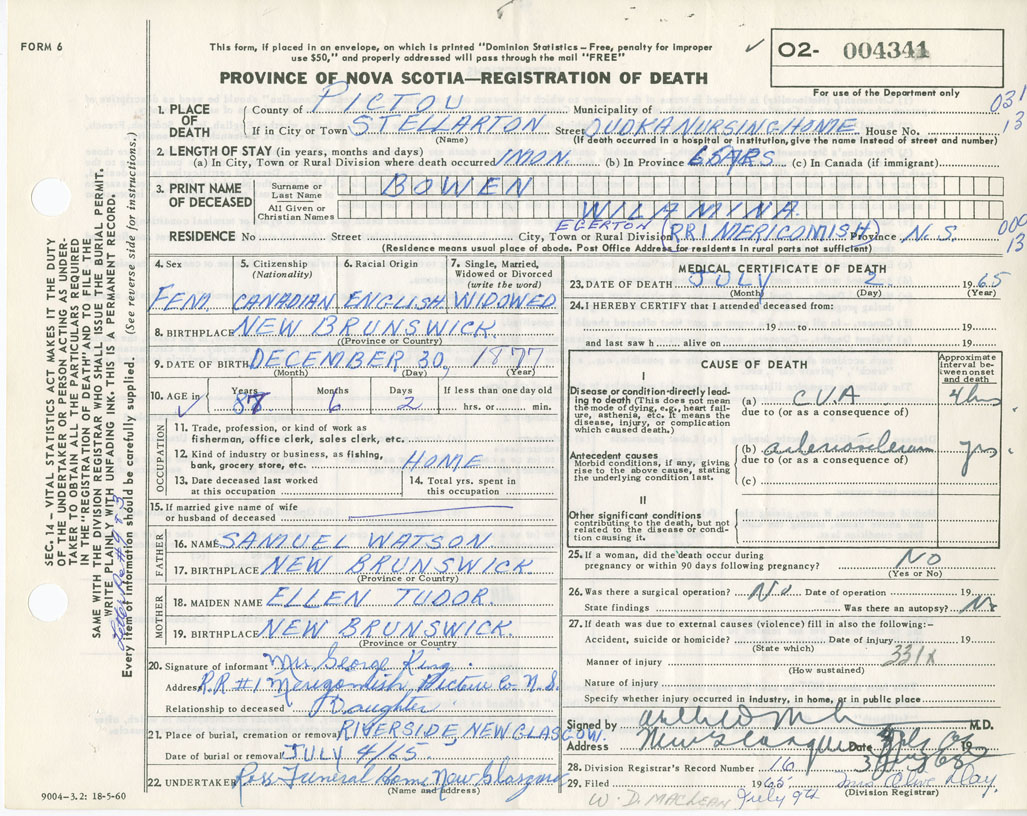 FORM 6
This form, if placed in an envelope, on which is printed "Dominion Statistics – Free, penalty for improper
use $50," and properly addressed will pass through the mail "FREE"
PROVINCE OF NOVA SCOTIA—REGISTRATION OF DEATH
✓ O2- 004341
For use of the Department only
1. PLACE OF DEATH
County of PICTOU Municipality of 031
If in City or Town STELLARTON Street NURSING HOME House No. 13
(Name) (If death occurred in a hospital or institution, give the name instead of street and number)
2. LENGTH OF STAY (in years, months and days)
(a) In City, Town or Rural Division where death occurred 1 MON. (b) In Province (c) In Canada (if immigrant)
3. PRINT NAME OF DECEASED
Surname or Last Name BOWEN
All Given or Christian Names WILAMINA
EGERTON
RESIDENCE No Street City, Town or Rural Division (RR1 MERICOMISH) Province N.S. 000
13
(Residence means usual place of abode. Post Office Address for residents in rural parts not sufficient)
4. Sex FEM.
5. Citizenship (Nationality) CANADIAN
6. Racial Origin ENGLISH
7. Single, Married, Widowed or Divorced (write the word) WIDOWED
8. BIRTHPLACE NEW BRUNSWICK.
(Province or Country)
9. DATE OF BIRTH DECEMBER 30, 1877
(Month) (Day) (Year)
10. AGE in ✓ Years 87 Months 6 Days 2 If less than one day old hrs. or min.
OCCUPATION
11. Trade, profession, or kind of work as
fisherman, office clerk, sales clerk, etc.
12. Kind of industry or business, as fishing,
bank, grocery store, etc. HOME
13. Date deceased last worked
at this occupation
14. Total yrs. spent in
this occupation
15. If married give name of wife
or husband of deceased
FATHER
16. NAME SAMUEL WATSON
17. BIRTHPLACE NEW BRUNSWICK.
(Province or Country)
MOTHER
18. MAIDEN NAME ELLEN TUDOR.
19. BIRTHPLACE NEW BRUNSWICK.
(Province or Country)
20. Signature of informant Mrs George King.
Address R.R #1 Merigomish, Pictou Co N.S.
Relationship to deceased Daughter
21. Place of burial, cremation or removal RIVERSIDE, NEW GLASGOW.
Date of burial or removal JULY 4/65.
22. UNDERTAKER Ross Funeral Home New Glasgow
(Name and address)
9004-3.2: 18-5-60
MEDICAL CERTIFICATE OF DEATH
23. DATE OF DEATH JULY 2 1965
(Month) (Day) (Year)
24. I HEREBY CERTIFY that I attended deceased from:
19 to 19
and last saw h alive on 19
CAUSE OF DEATH
Approximate interval between onset and death
I
Disease or condition directly leading
to death (This does not mean
the mode of dying, e.g., heart failure,
asthenia, etc. It means the
disease, injury, or complication
which caused death.)
(a) C.V.A 4 hrs
due to (or as a consequence of)
Antecedent causes
Morbid conditions, if any, giving
rise to the above cause, stating
the underlying condition last.
(b) yrs.
due to (or as a consequence of)
(c)
II
Other significant conditions
contributing to the death, but not
related to the disease or condition
causing it.
25. If a woman, did the death occur during
pregnancy or within 90 days following pregnancy? NO
(Yes or No)
26. Was there a surgical operation? No Date of operation 19
State findings Was there an autopsy? No
27. If death was due to external causes (violence) fill in also the following:–
Accident, suicide or homicide? Date of injury 19
(State which)
331X
Manner of injury
(How sustained)
Nature of injury
Specify whether injury occurred in industry, in home, or in public place
Signed by M.D.
Address New Glasgow Date 19
28. Division Registrar's Record Number 16
29. Filed 1965 July 9th Clive Day.
(Division Registrar)
W. D. MACLEAN
SEC. 14 – VITAL STATISTICS ACT MAKES IT THE DUTY
OF THE UNDERTAKER OR PERSON ACTING AS UNDERTAKER
TO OBTAIN ALL THE PARTICULARS REQUIRED
IN THE "REGISTRATION OF DEATH" AND TO FILE THE
SAME WITH THE DIVISION REGISTRAR WHO SHALL ISSUE THE BURIAL PERMIT.
WRITE PLAINLY WITH UNFADING INK. THIS IS A PERMANENT RECORD.
Every item of information should be carefully supplied. (See reverse side for instructions.)